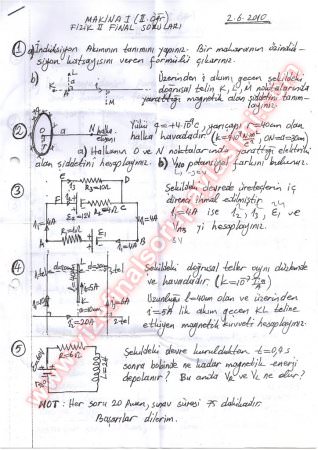 MAKİNA I (II. Öğr)
FİZİK II FİNAL SORULARI
2.6.2010
① a) İndüksiyon Akımının tanımını yapınız. Bir makaranın özindük-
siyon katsayısını veren formülü çıkarınız.
b) Üzerinden i akımı geçen şekildeki
doğrusal telin K, L, M noktalarında
yarattığı magnetik alan şiddetini tanım-
layınız.
K L M
② Yüklü q=+4.10⁻⁶C, yarıçapı r=40cm olan
halka havadadır. ON=d=30cm
O a N halka ekseni
a) Halkanın O ve N noktalarında yarattığı elektriki
alan şiddetini hesaplayınız. b) potansiyel farkını bulunuz.
③ Şekildeki devrede üreteçlerin iç
direnci ihmal edilmiştir.
i₁=4A ise i₂, i₃, E₁ ve
yi hesaplayınız.
C D
A B
E₂=12V
i₁=4A
E₁
④ Şekildeki doğrusal teller aynı düzlemde
ve havadadır. (K=10⁻⁷
Uzunluğu l=40cm olan ve üzerinden
i=5A lik akım geçen KL teline
etkiyen magnetik kuvveti hesaplayınız.
1-tel 2-tel
i=5A
3-tel
⑤ Şekildeki devre kurulduktan t=0,4s
sonra bobinde ne kadar magnetik enerji
depolanır? Bu anda V_R ve V_L ne olur?
R=6Ω
NOT: Her soru 20 Puan, sınav süresi 75 dakikadır.
Başarılar dilerim.